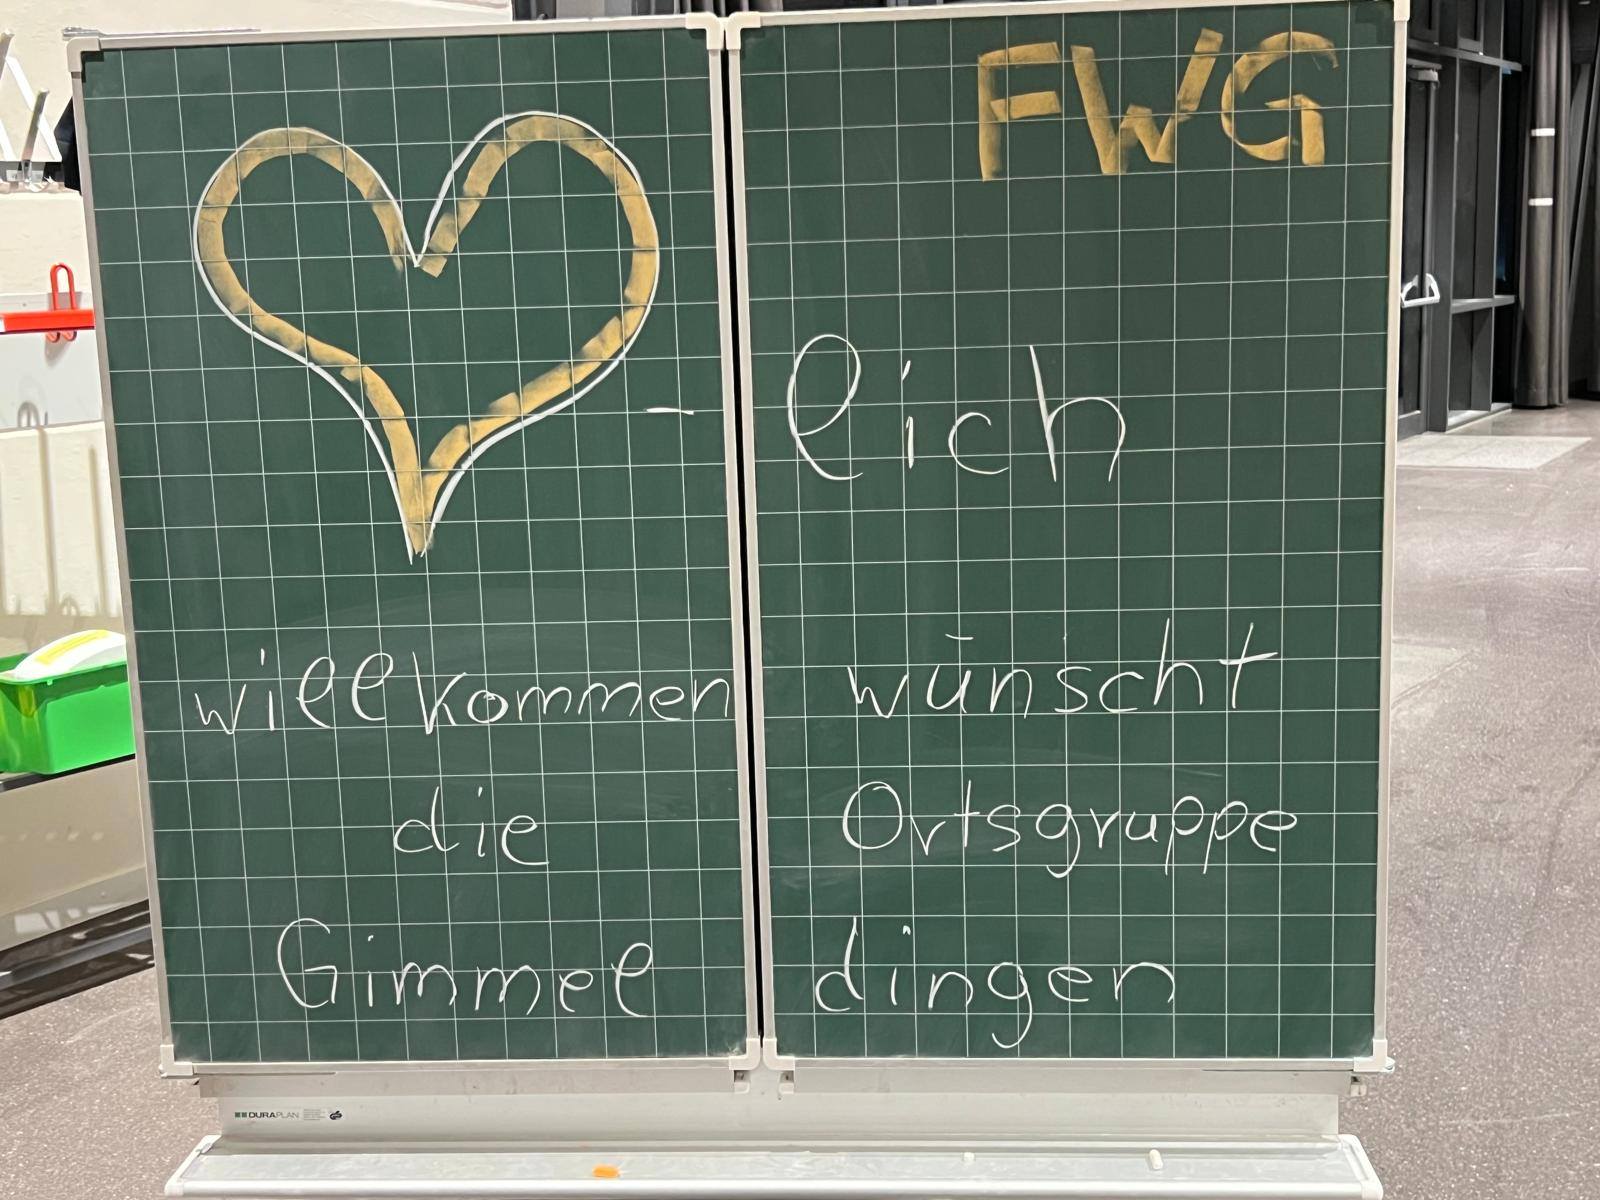 FWG
- lich
willkommen wünscht
die Ortsgruppe
Gimmel dingen
DURAPLAN